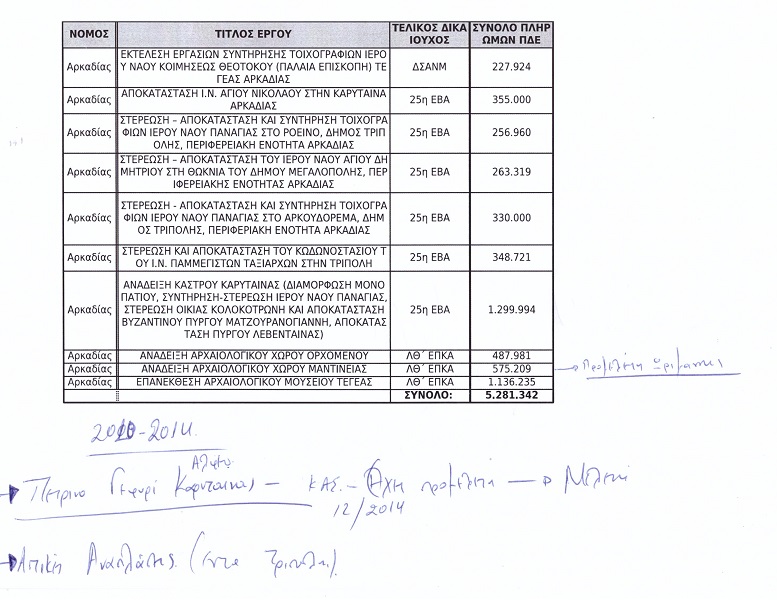 ΝΟΜΟΣ ΤΙΤΛΟΣ ΕΡΓΟΥ ΤΕΛΙΚΟΣ ΔΙΚΑ ΣΥΝΟΛΟ ΠΛΗΡ
ΙΟΥΧΟΣ ΩΜΩΝ ΠΔΕ
ΕΚΤΕΛΕΣΗ ΕΡΓΑΣΙΩΝ ΣΥΝΤΗΡΗΣΗΣ ΤΟΙΧΟΓΡΑΦΙΩΝ ΙΕΡΟ
Αρκαδίας Υ ΝΑΟΥ ΚΟΙΜΗΣΕΩΣ ΘΕΟΤΟΚΟΥ (ΠΑΛΑΙΑ ΕΠΙΣΚΟΠΗ) ΤΕ ΔΣΑΝΜ 227.924
ΓΕΑΣ ΑΡΚΑΔΙΑΣ
ΑΠΟΚΑΤΑΣΤΑΣΗ Ι.Ν. ΑΓΙΟΥ ΝΙΚΟΛΑΟΥ ΣΤΗΝ ΚΑΡΥΤΑΙΝΑ
Αρκαδίας ΑΡΚΑΔΙΑΣ 25η ΕΒΑ 355.000
ΣΤΕΡΕΩΣΗ – ΑΠΟΚΑΤΑΣΤΑΣΗ ΚΑΙ ΣΥΝΤΗΡΗΣΗ ΤΟΙΧΟΓΡΑ
Αρκαδίας ΦΙΩΝ ΙΕΡΟΥ ΝΑΟΥ ΠΑΝΑΓΙΑΣ ΣΤΟ ΡΟΕΙΝΟ, ΔΗΜΟΣ ΤΡΙΠ 25η ΕΒΑ 256.960
ΟΛΗΣ, ΠΕΡΙΦΕΡΕΙΑΚΗ ΕΝΟΤΗΤΑ ΑΡΚΑΔΙΑΣ
ΣΤΕΡΕΩΣΗ – ΑΠΟΚΑΤΑΣΤΑΣΗ ΤΟΥ ΙΕΡΟΥ ΝΑΟΥ ΑΓΙΟΥ ΔΗ
Αρκαδίας ΜΗΤΡΙΟΥ ΣΤΗ ΘΩΚΝΙΑ ΤΟΥ ΔΗΜΟΥ ΜΕΓΑΛΟΠΟΛΗΣ, ΠΕΡ 25η ΕΒΑ 263.319
ΙΦΕΡΕΙΑΚΗΣ ΕΝΟΤΗΤΑΣ ΑΡΚΑΔΙΑΣ
ΣΤΕΡΕΩΣΗ - ΑΠΟΚΑΤΑΣΤΑΣΗ ΚΑΙ ΣΥΝΤΗΡΗΣΗ ΤΟΙΧΟΓΡΑ
Αρκαδίας ΦΙΩΝ ΙΕΡΟΥ ΝΑΟΥ ΠΑΝΑΓΙΑΣ ΣΤΟ ΑΡΚΟΥΔΟΡΕΜΑ, ΔΗΜ 25η ΕΒΑ 330.000
ΟΣ ΤΡΙΠΟΛΗΣ, ΠΕΡΙΦΕΡΙΑΚΗ ΕΝΟΤΗΤΑ ΑΡΚΑΔΙΑΣ
ΣΤΕΡΕΩΣΗ ΚΑΙ ΑΠΟΚΑΤΑΣΤΑΣΗ ΤΟΥ ΚΩΔΩΝΟΣΤΑΣΙΟΥ Τ
Αρκαδίας ΟΥ Ι.Ν. ΠΑΜΜΕΓΙΣΤΩΝ ΤΑΞΙΑΡΧΩΝ ΣΤΗΝ ΤΡΙΠΟΛΗ 25η ΕΒΑ 348.721
ΑΝΑΔΕΙΞΗ ΚΑΣΤΡΟΥ ΚΑΡΥΤΑΙΝΑΣ (ΔΙΑΜΟΡΦΩΣΗ ΜΟΝΟ
ΠΑΤΙΟΥ, ΣΥΝΤΗΡΗΣΗ-ΣΤΕΡΕΩΣΗ ΙΕΡΟΥ ΝΑΟΥ ΠΑΝΑΓΙΑΣ,
Αρκαδίας ΣΤΕΡΕΩΣΗ ΟΙΚΙΑΣ ΚΟΛΟΚΟΤΡΩΝΗ ΚΑΙ ΑΠΟΚΑΤΑΣΤΑΣΗ 25η ΕΒΑ 1.299.994
ΒΥΖΑΝΤΙΝΟΥ ΠΥΡΓΟΥ ΜΑΤΖΟΥΡΑΝΟΓΙΑΝΝΗ, ΑΠΟΚΑΤΑΣ
ΤΑΣΗ ΠΥΡΓΟΥ ΛΕΒΕΝΤΑΙΝΑΣ)
Αρκαδίας ΑΝΑΔΕΙΞΗ ΑΡΧΑΙΟΛΟΓΙΚΟΥ ΧΩΡΟΥ ΟΡΧΟΜΕΝΟΥ ΛΘ΄ ΕΠΚΑ 487.981
Αρκαδίας ΑΝΑΔΕΙΞΗ ΑΡΧΑΙΟΛΟΓΙΚΟΥ ΧΩΡΟΥ ΜΑΝΤΙΝΕΙΑΣ ΛΘ΄ ΕΠΚΑ 575.209
Αρκαδίας ΕΠΑΝΕΚΘΕΣΗ ΑΡΧΑΙΟΛΟΓΙΚΟΥ ΜΟΥΣΕΙΟΥ ΤΕΓΕΑΣ ΛΘ΄ ΕΠΚΑ 1.136.235
ΣΥΝΟΛΟ: 5.281.342
2010-2014.
Πέτρινο Γεφύρι Καρύταινας – ΚΑΣ – προμελέτη → Μελέτη
12/2014